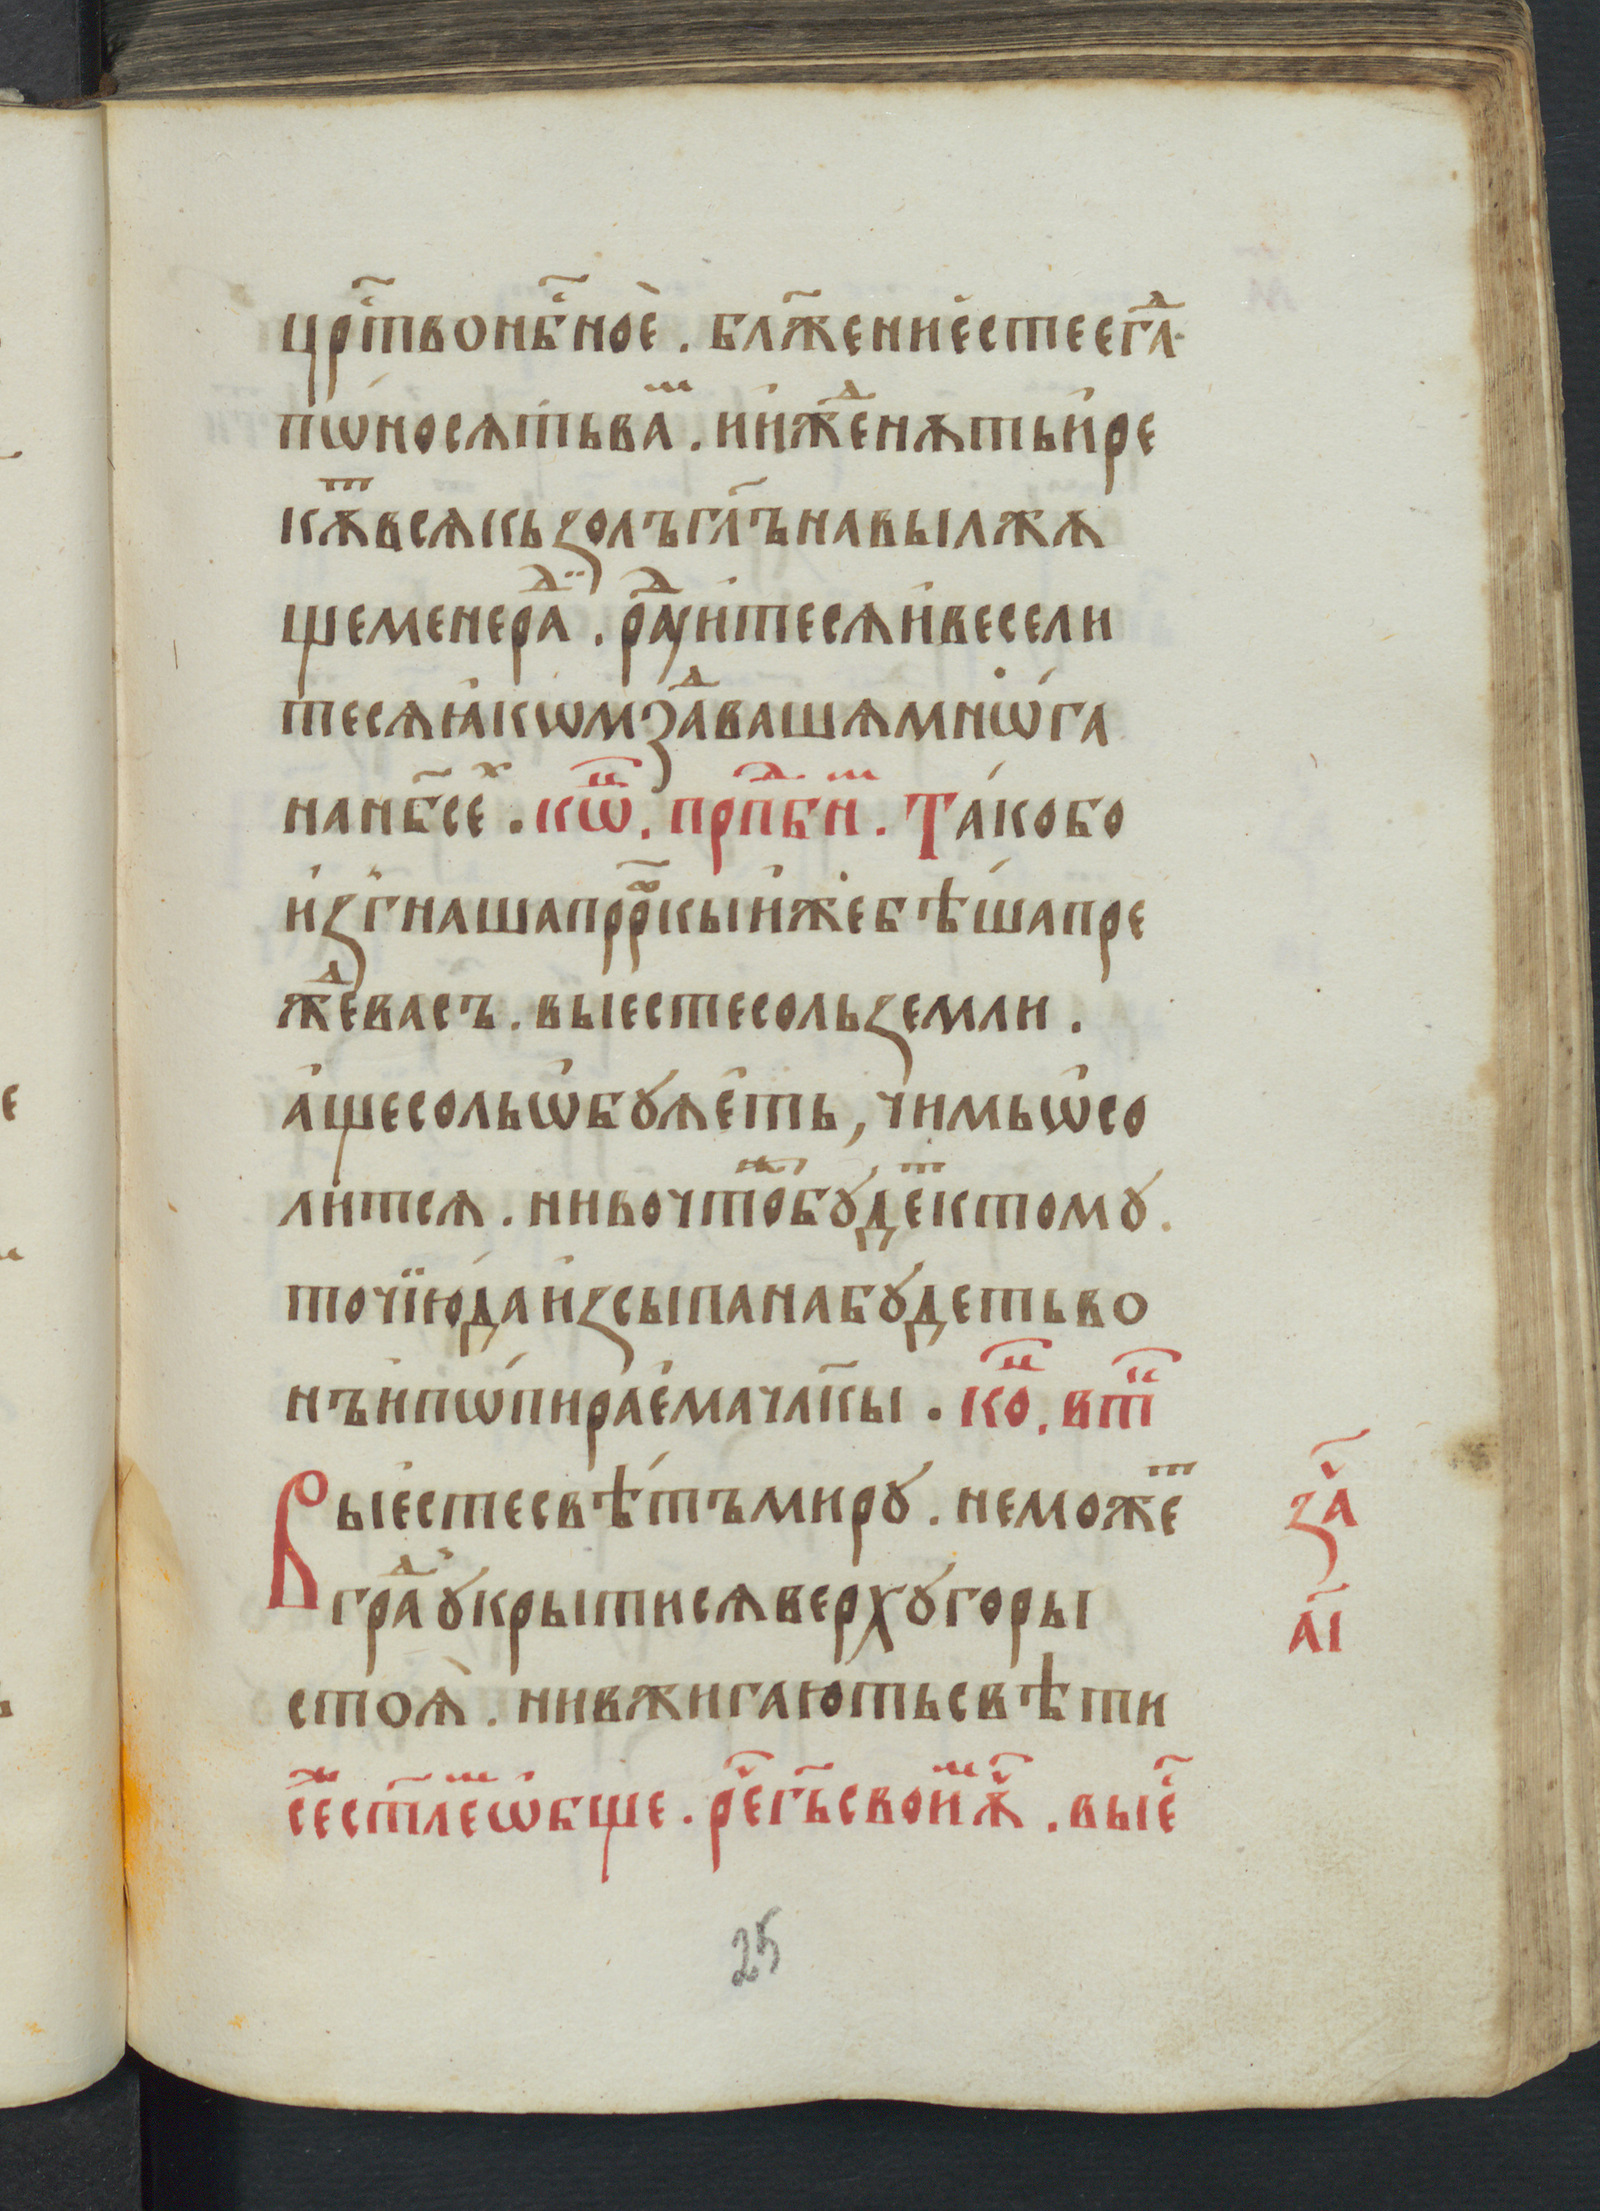 цр҃тво нб҃ноѐ. бл҃жени е́сте егⷣа҃
пѡно́сѧть ваⷨ. и и́жⷣенѫть и҆ ре
кѫⷮ всѧкь ꙁолъ гл҃ъ на вы лжѫ
ще мене раⷣ. раⷣуи́те сѧ и҆ весели
те сѧ ꙗ́ко мзⷣа ваша мнѡ́га
на нб҃сеⷯ. кѡⷩ҇. прпⷣбнⷨ. Та́ко бо
и҆ꙁгнаша прⷪ҇ркы и҆же бѣ́ша пре
жⷣе васъ. вы есте соль ꙁемли.
а҆ще соль ѡ҆бꙋѧ́еть, чимь ѡ҆со
ли́тсѧ. ни во чтожⷤ бꙋдеⷮ к томꙋ.
точїю̀ да и҆ꙁсыпана бꙋдеть во
нъ и҆ пѡпира́ема чл҃кы. коⷩ҇. втⷩ
Вы е́сте свѣ́тъ мирꙋ. не можеⷮ
граⷣ ꙋкрыти сѧ верхꙋ горы
стоѧ̀. ни вжигають свѣти
сеⷤ ст҃леⷨ ѡ҆бще. реⷱ҇ гь҃ своиⷨ ѫⷱ҇. вы е҆҃
за҃
а҃і
25